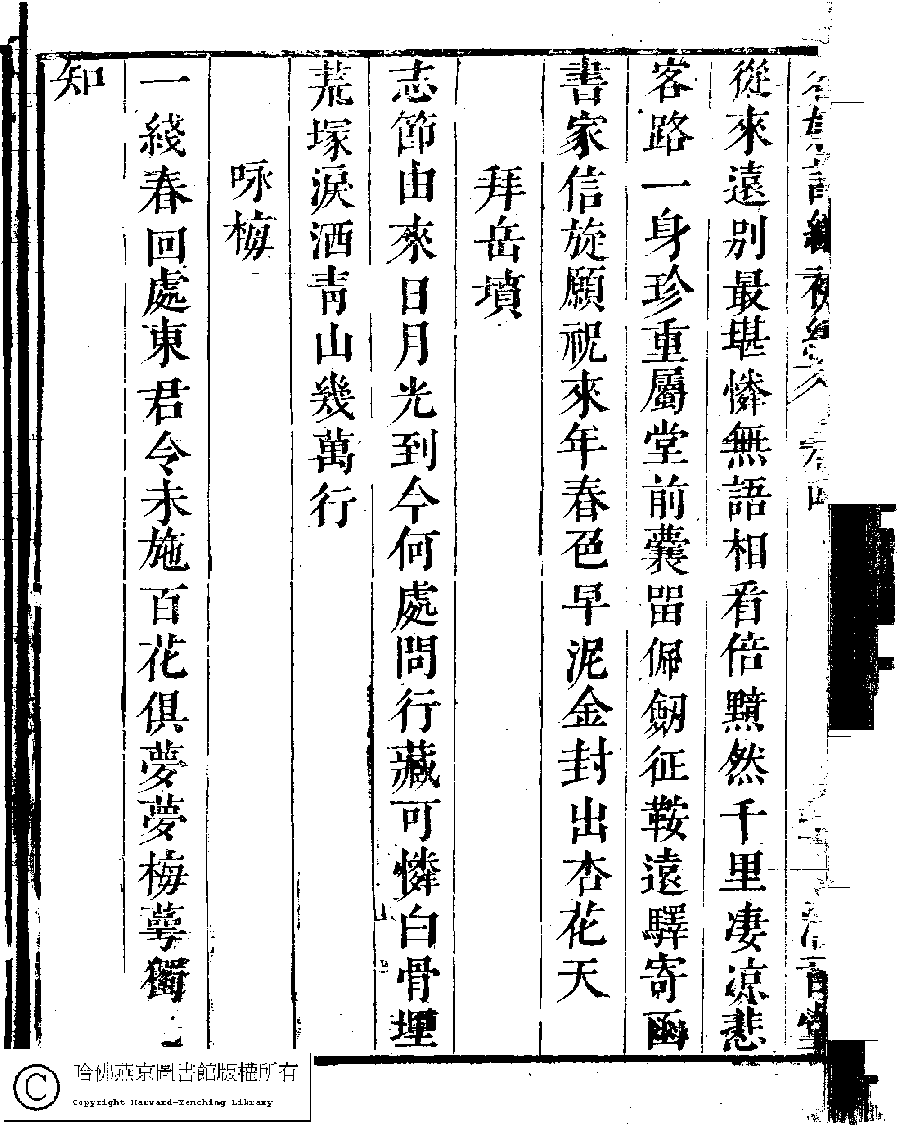 從來遠別最堪憐無語相看倍黯然千里凄凉悲
客路一身珍重屬堂前囊畱佩劒征鞍遠驛寄函
書家信旋願祝來年春色早泥金封出杏花天
拜岳墳
志節由來日月光到今何處問行藏可憐白骨埋
荒塚淚洒靑山幾萬行
咏梅
一綫春回處東君令未施百花俱夢夢梅萼獨
知
哈佛燕京圖書館版權所有
Copyright Harvard-Yenching Library